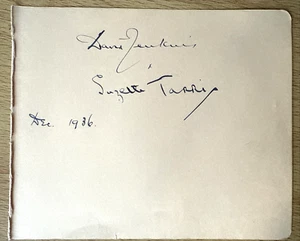 David Jenkins
&
Suzette Tarri
Dec. 1936.